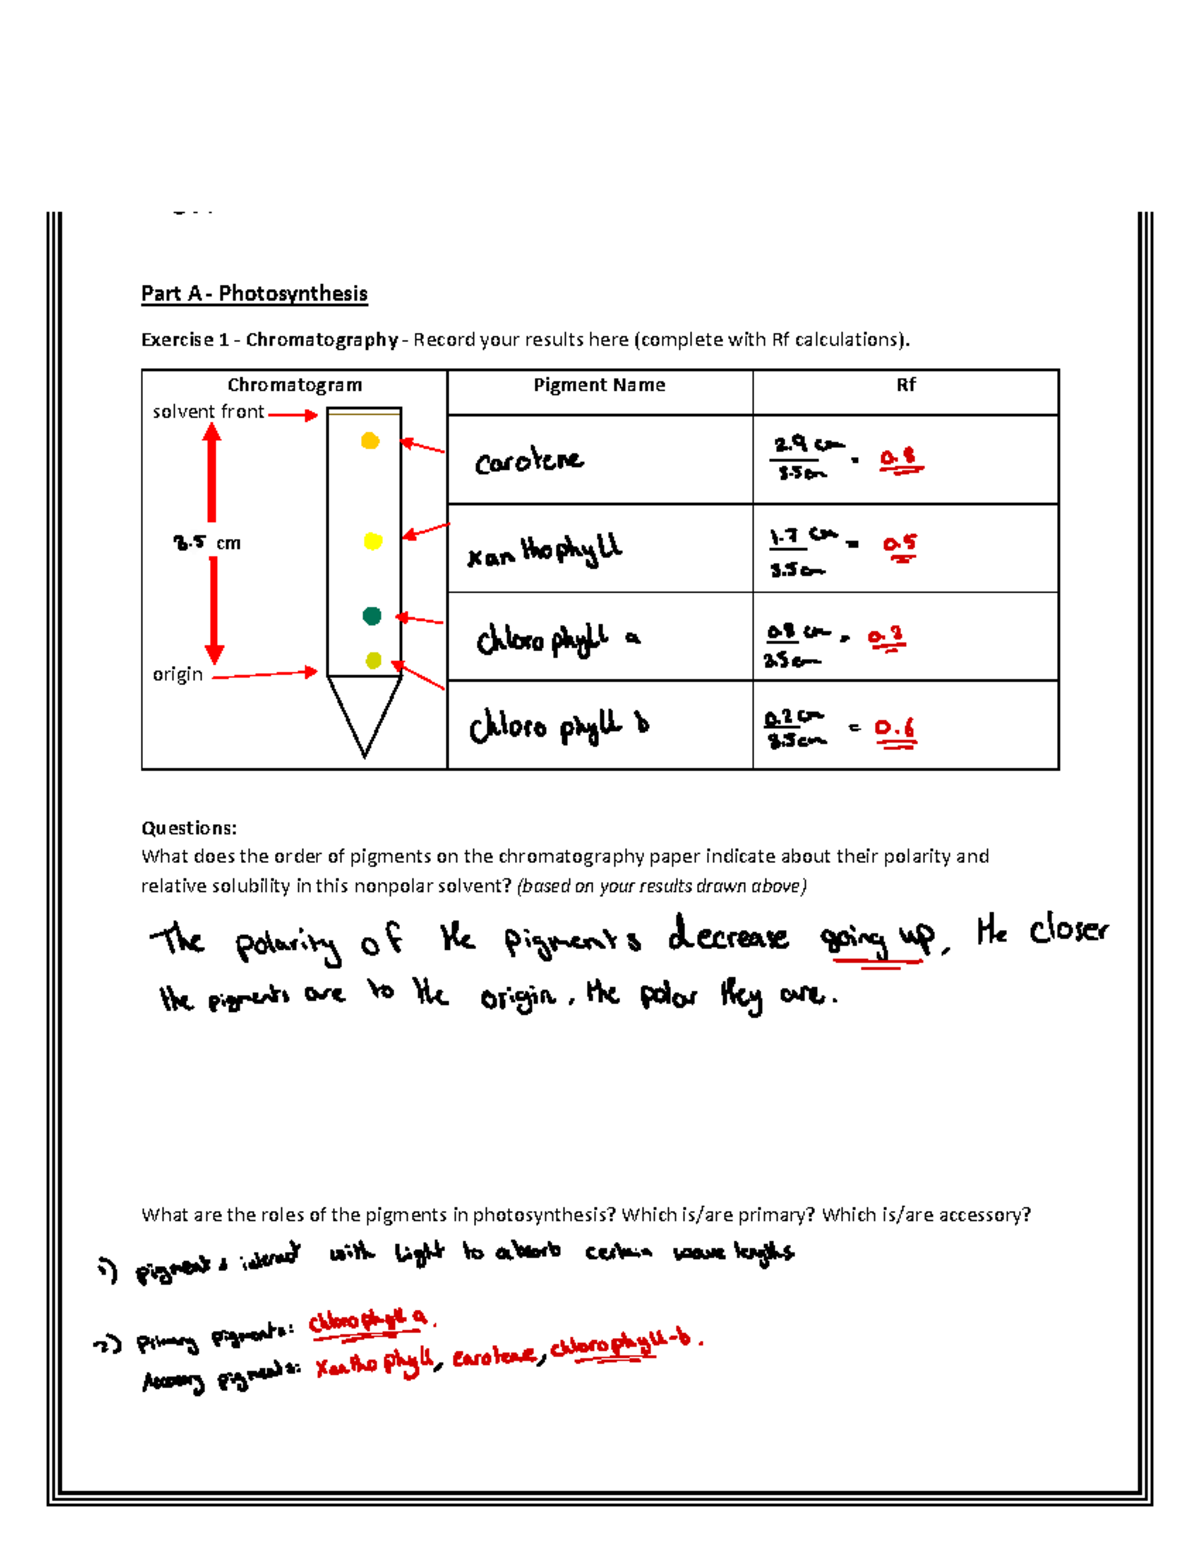 Part A - Photosynthesis
Exercise 1 - Chromatography - Record your results here (complete with Rf calculations).
Chromatogram
Pigment Name
Rf
solvent front
3.5 cm
origin
Carotene
2.9 cm
3.5 cm
= 0.8
xanthophyll
1.7 cm
3.5 cm
= 0.5
chlorophyll a
0.8 cm
3.5 cm
= 0.2
chlorophyll b
0.2 cm
3.5 cm
= 0.6
Questions:
What does the order of pigments on the chromatography paper indicate about their polarity and
relative solubility in this nonpolar solvent? (based on your results drawn above)
The polarity of the pigments decrease going up, the closer
the pigments are to the origin, the polar they are.
What are the roles of the pigments in photosynthesis? Which is/are primary? Which is/are accessory?
1) pigments interact with light to absorb certain wave lengths
2) Primary pigments: chlorophyll a.
Accessory pigments: Xanthophyll, carotene, chlorophyll-b.